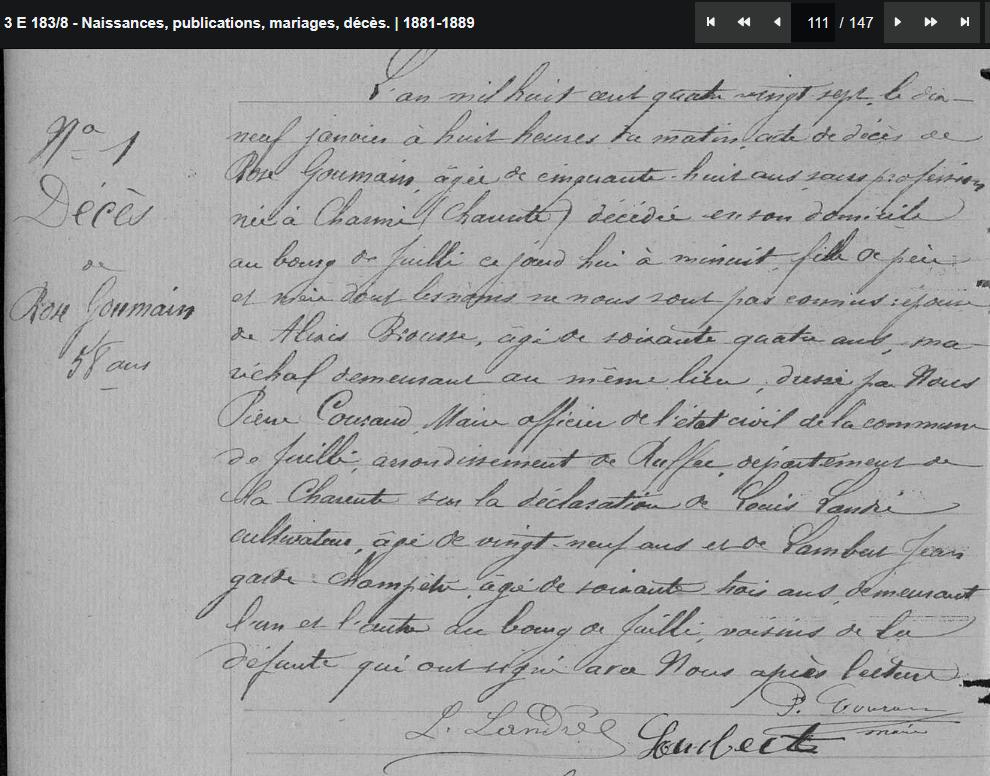 3 E 183/8 - Naissances, publications, mariages, décès. | 1881-1889
111 / 147
L'an mil huit cent quatre vingt sept, le dix-
neuf janvier à huit heures du matin, acte de décès de
Rose Goumain, âgée de cinquante-huit ans sans profession
née à Charmé (Charente) décédée en son domicile
au bourg de Juillé ce jourd'hui à minuit, fille de père
et mère dont les noms ne nous sont pas connus; épouse
de Alexis Brousse, âgé de soixante quatre ans, ma-
réchal demeurant au même lieu, dressé par Nous
Pierre Couraud, Maire officier de l'état civil de la commune
de Juillé, arrondissement de Ruffec, département de
la Charente sur la déclaration de Louis Landré
cultivateur, âgé de vingt-neuf ans et de Lambert Jean
garde-champêtre, âgé de soixante trois ans, demeurant
l'un et l'autre au bourg de Juillé, voisins de la
défunte qui ont signé avec Nous après lecture
P. Couraud
L. Landré Lambert maire
No 1
Décès
de
Rose Goumain
58 ans